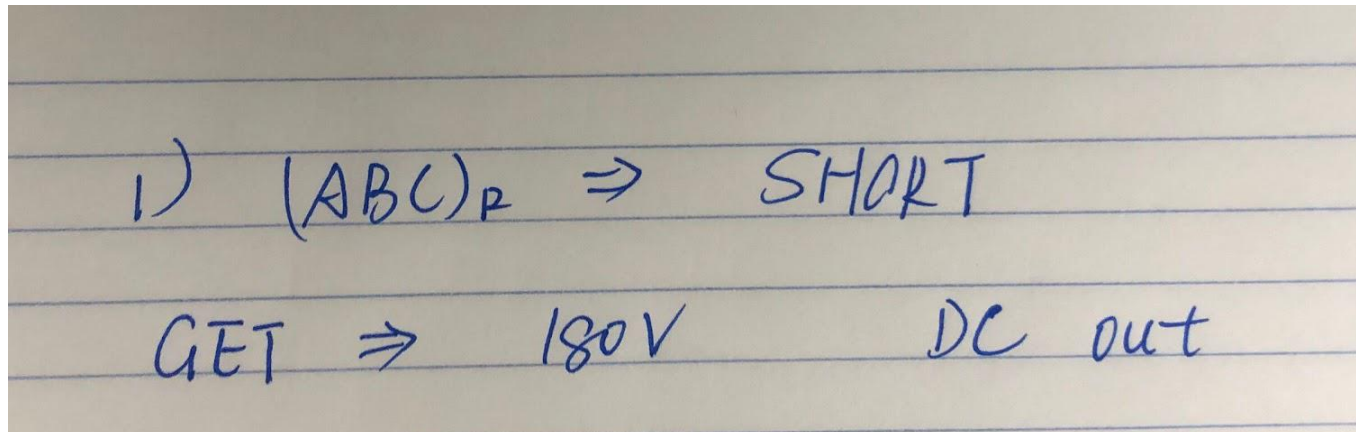 1) (ABC)R ⇒ SHORT
GET ⇒ 180V DC out